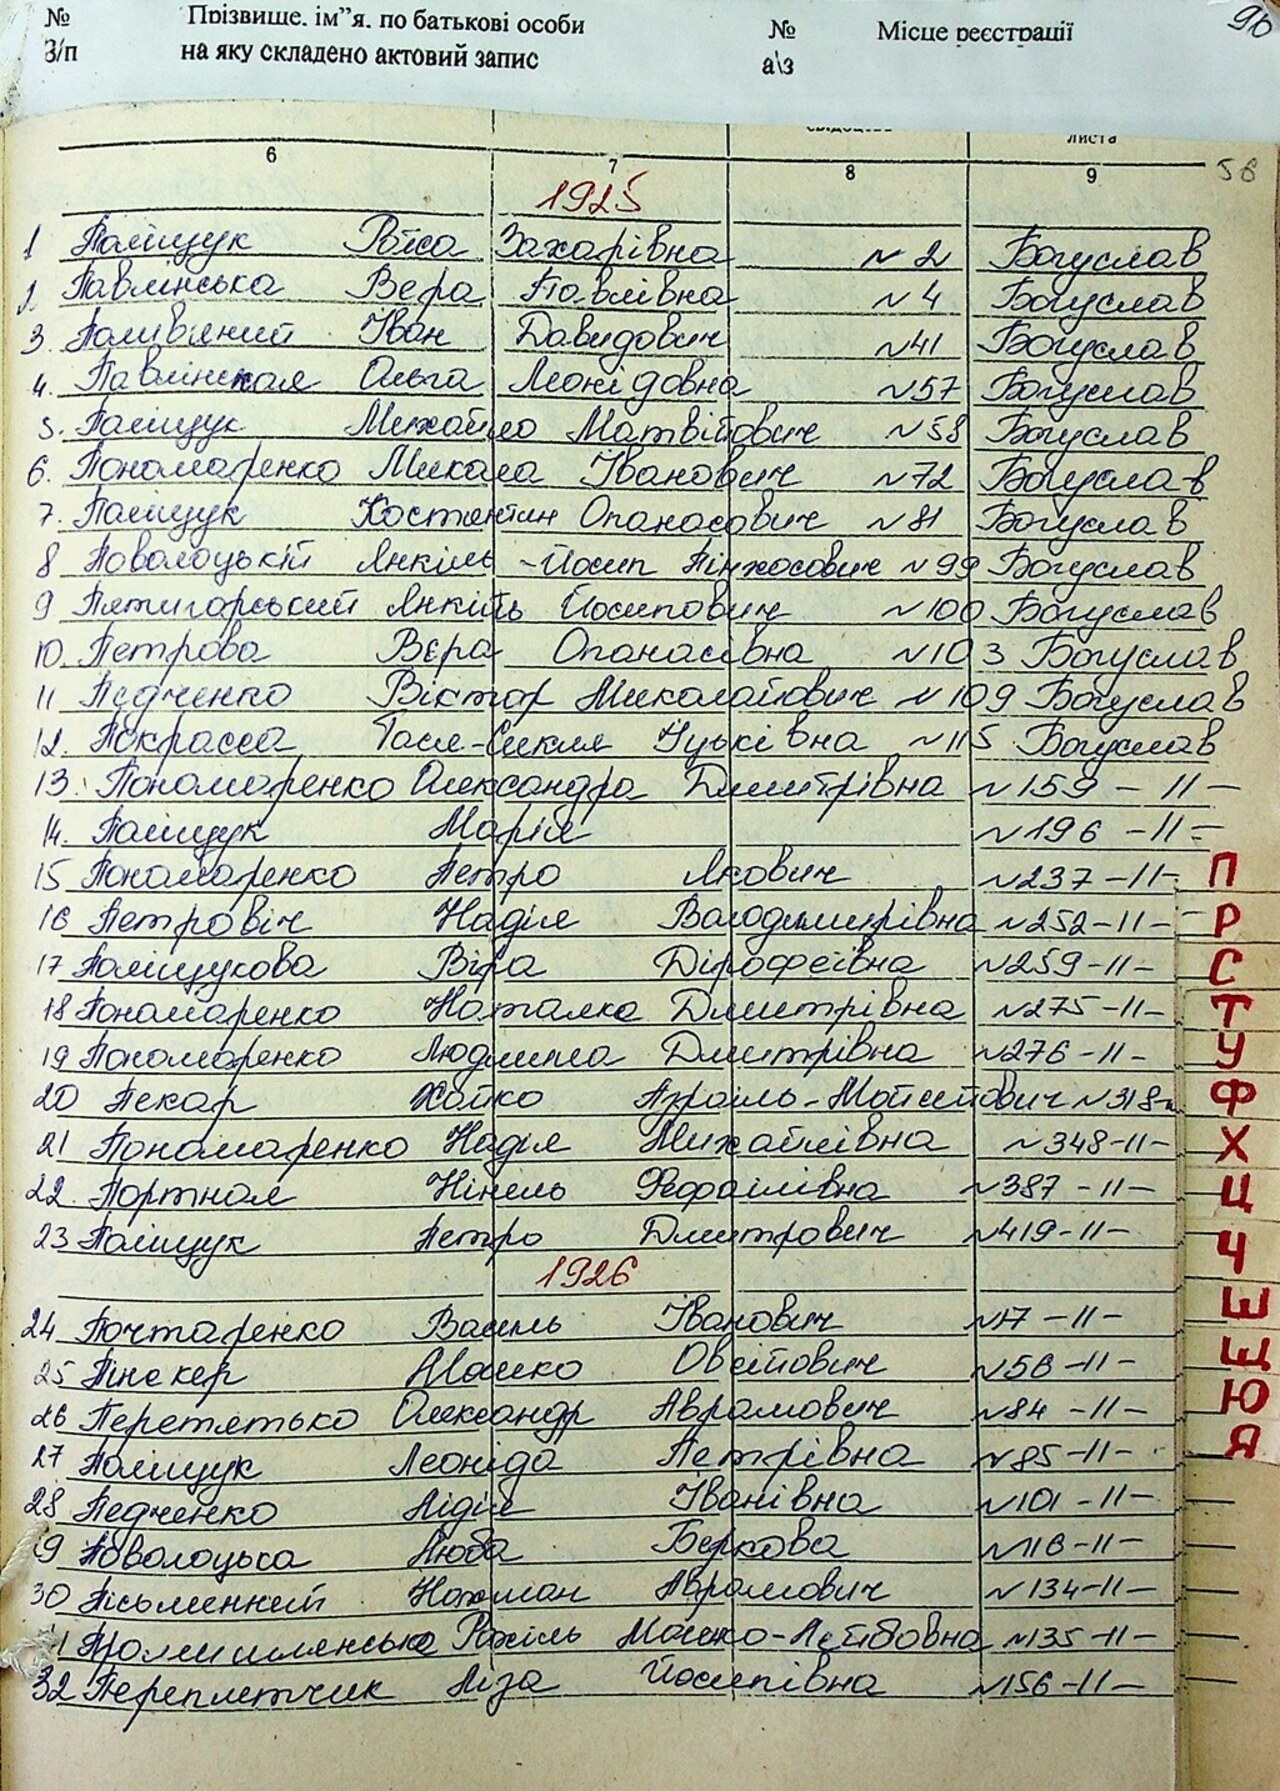 № Прізвище, ім”я, по батькові особи № Місце реєстрації 90
З/п на яку складено актовий запис а\з
листа
6 7 8 9 58
1925
1 Поліщук Роїса Захарівна №2 Богуслав
2. Павлінська Вера Павлівна №4 Богуслав
3. Полив'яний Іван Давидович №41 Богуслав
4. Павлінская Ольга Леонідовна №57 Богуслав
5. Поліщук Михайло Матвійович №58 Богуслав
6. Пономаренко Микола Іванович №72 Богуслав
7. Поліщук Костянтин Опанасович №81 Богуслав
8 Поволоцькій Янкіль-Йосип Пінхосович №99 Богуслав
9 Пятигорський Янкіль Йосипович №100 Богуслав
10. Петрова Вєра Опанасівна №103 Богуслав
11 Педченко Віктор Миколайович №109 Богуслав
12. Покрасса Іцьківна №115 Богуслав
13. Пономаренко Олександра Дмитрівна №159 -11-
14. Поліщук Марія №196 -11-
15 Пономаренко Петро Якович №237 -11-
16 Петровіч Надія Володимирівна №252 -11-
17 Поліщукова Віра Дірофеївна №259 -11-
18 Пономаренко Наталка Дмитрівна №275 -11-
19 Пономаренко Людмила Дмитрівна №276 -11-
20 Пекар Хайко Азраіль-Мойсейович №318-
21 Пономаренко Надія Михайлівна №348 -11-
22. Портная Нінель №387 -11-
23 Поліщук Петро Дмитрович №419 -11-
1926
24 Почтаренко Василь Іванович №17 -11-
25 Пінскер Мошко Овсійович №56 -11-
26 Перетятько Олександр Аврамович №84 -11-
27 Поліщук Леоніда Петрівна №85 -11-
28 Педченко Лідія Іванівна №101 -11-
9 Поволоцька Люба Беркова №116 -11-
30 Письменний Нахман Аврамович №134 -11-
1 Рохіль Мошко-Лейбовна №135 -11-
32 Переплетчик Ліза Йосипівна №156 -11-
П
Р
С
Т
У
Ф
Х
Ц
Ч
Ш
Щ
Ю
Я